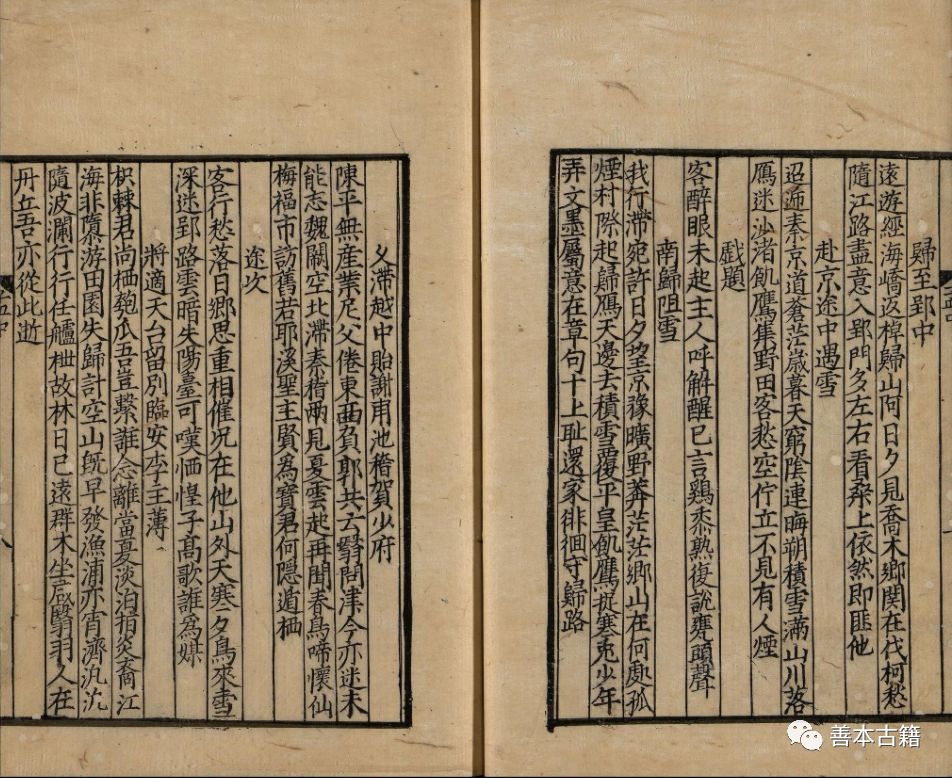 歸至郢中
遠遊經海嶠返棹歸山阿日夕見喬木鄉関在伐柯愁
隨江路盡意入郢門多左右看桑上依然即匪他
赴京途中遇雪
迢遞秦京道蒼茫歳暮天窮陰連晦朔積雪滿山川落
鴈迷沙渚飢鷹集野田客愁空佇立不見有人煙
戯題
客醉眠未起主人呼解酲已言鷄黍熟復說甕頭聲
南歸阻雪
我行滯宛許日夕望京豫曠野莽茫茫鄉山在何處孤
煙村際起歸鴈天邊去積雪覆平皇飢鷹捉寒兎少年
弄文墨屬意在章句十上耻還家徘徊守歸路
久滯越中貽謝甫池稽賀少府
陳平無産業尼父倦東西負郭共云翳問津今亦迷未
能志魏闕空北滯秦稽兩見夏雲起再聞春鳥啼懷仙
梅福市訪舊若耶溪聖主賢為寶君何隱遁栖
途次
客行愁落日鄉思重相催况在他山外天寒夕鳥來雪
深迷郢路雲暗失陽臺可嘆恓惶子高歌誰為媒
將適天台留別臨安李主薄
枳棘君尚栖匏瓜吾豈繫誰念離當夏淡泊指炎裔江
海非隳游田園失歸計空山旣早發漁浦亦宵濟汎汎
隨波瀾行行任艫枻故林日已遠群木坐成翳羽人在
丹丘吾亦從此逝
善本古籍